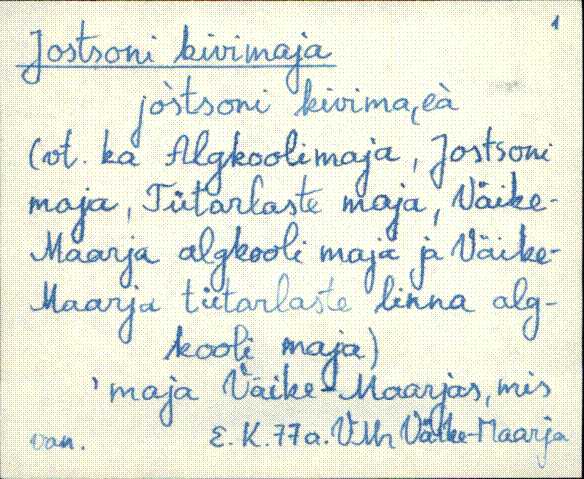 1
Jostsoni kivimaja
jòstsoni kivima,eà
(vt. ka Algkoolimaja, Jostsoni
maja, Tütarlaste maja, Väike-
Maarja algkooli maja ja Väike-
Maarja tütarlaste linna alg-
kooli maja)
'maja Väike-Maarjas, mis
van. E. K. 77a. VMr Väike-Maarja